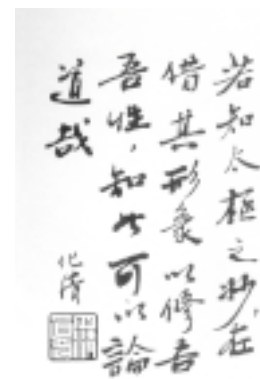 若知太極之妙，在
借其形象以修吾
吾性，知此可以論
道哉
化清